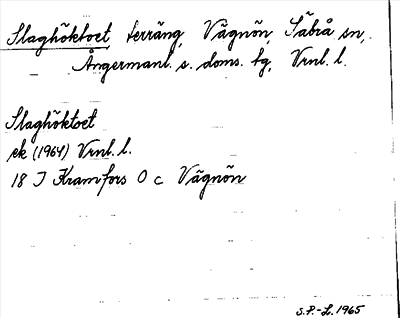 Slaghöktoet, terräng, Vägnön, Säbrå sn,
Ångermanl. s. doms. tg, Vrnl. l.
Slaghöktoet
ek (1964) Vrnl. l.
18 J Kramfors O c Vägnön
S.P.-L. 1965